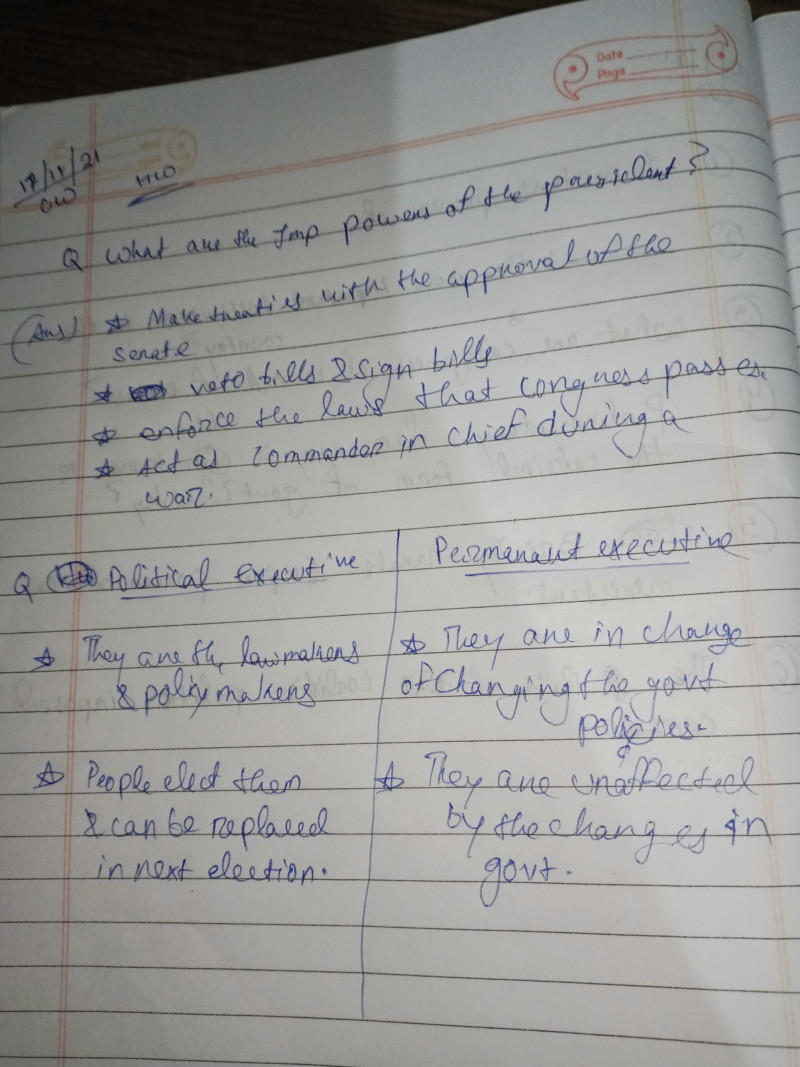 Date
Page
17/11/21
CW
HW
Q What are the Imp powers of the president?
(Ans) ☆ Make treaties with the approval of the
senate
☆ veto bills & sign bills
☆ enforce the laws that congress passes.
☆ Act as commander in chief during a
war.
Q Political executive
☆ They are the lawmakers
& policymakers
☆ People elect them
& can be replaced
in next election.
Permenant executive
☆ They are in charge
of Changing the govt
policies.
☆ They are unaffected
by the changes in
govt.